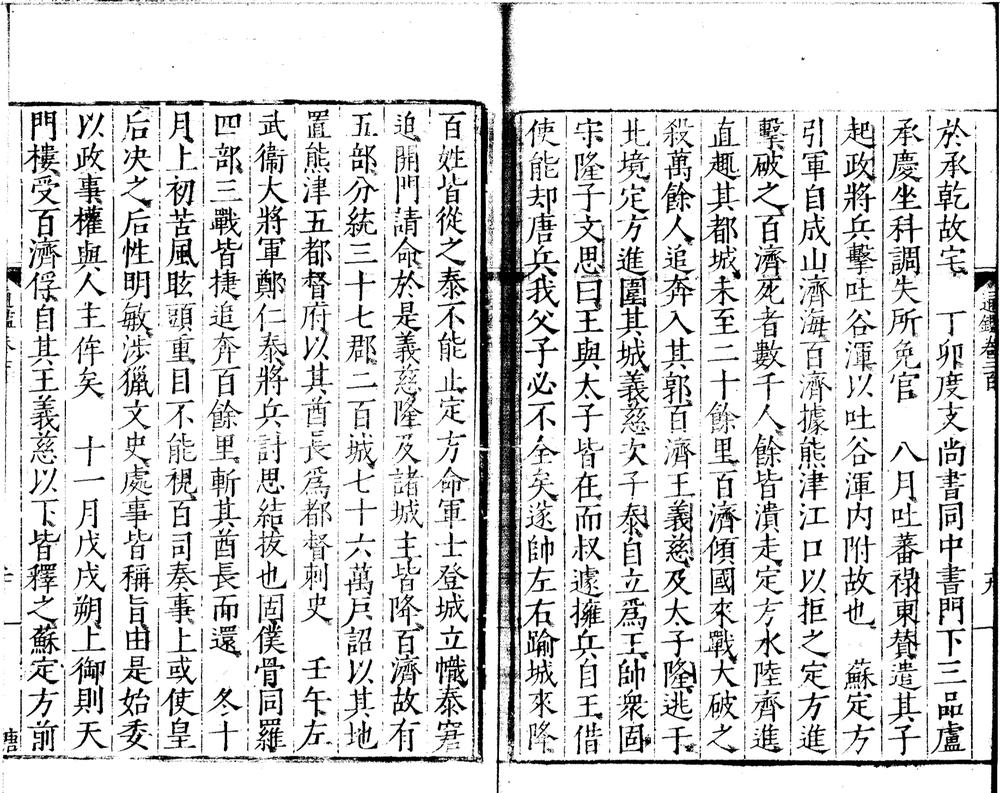 於承乾故宅　丁卯度支尚書同中書門下三品盧
承慶坐科調失所免官　八月吐蕃祿東贊遣其子
起政將兵擊吐谷渾以吐谷渾内附故也　蘇定方
引軍自成山濟海百濟據熊津江口以拒之定方進
擊破之百濟死者數千人餘皆潰走定方水陸齊進
直趣其都城未至二十餘里百濟傾國來戰大破之
殺萬餘人追奔入其郭百濟王義慈及太子隆逃于
北境定方進圍其城義慈次子泰自立爲王帥衆固
守隆子文思曰王與太子皆在而叔遽擁兵自王借
使能却唐兵我父子必不全矣遂帥左右踰城來降
百姓皆從之泰不能止定方命軍士登城立幟泰窘
迫開門請命於是義慈隆及諸城主皆降百濟故有
五部分統三十七郡二百城七十六萬戶詔以其地
置熊津五都督府以其酋長爲都督刺史　壬午左
武衞大將軍鄭仁泰將兵討思結拔也固僕骨同羅
四部三戰皆捷追奔百餘里斬其酋長而還　冬十
月上初苦風眩頭重目不能視百司奏事上或使皇
后決之后性明敏涉獵文史處事皆稱旨由是始委
以政事權與人主侔矣　十一月戊戌朔上御則天
門樓受百濟俘自其王義慈以下皆釋之蘇定方前